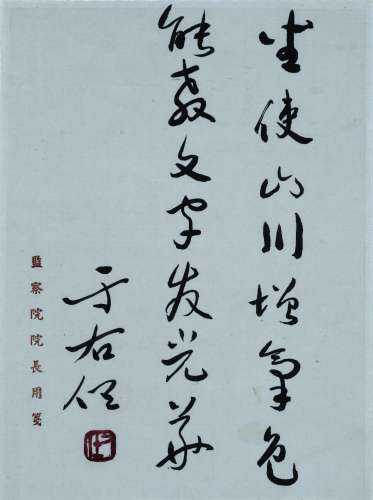 坐使山川增氣色
能教文字發光華
于右任
監察院院長用箋